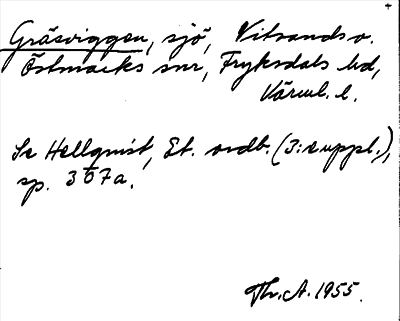 Gräsviggen, sjö, Vitsands o.
Östmarks snr, Fryksdals hd,
Värml. l.
Se Hellquist, Et. ordb. (3: e uppl.),
sp. 1357a.
Th. A. 1955.